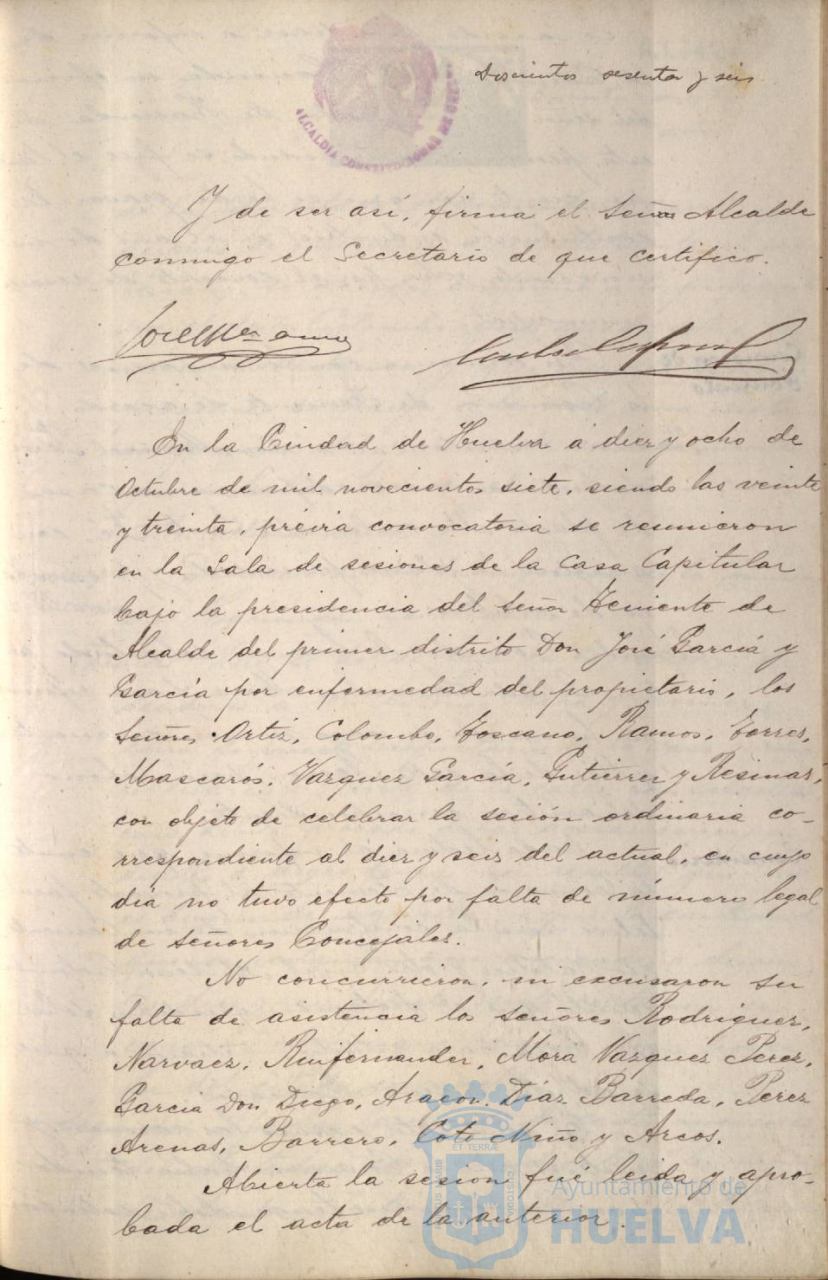 Doscientos sesenta y seis
ALCALDIA CONSTITUCIONAL DE HUELVA
Y de ser así, firma el Señor Alcalde
conmigo el Secretario de que certifico.
En la Ciudad de Huelva á diez y ocho de
Octubre de mil novecientos siete, siendo las veinte
y treinta, prévia convocatoria se reunieron
en la Sala de sesiones de la Casa Capitular
bajo la presidencia del Señor Teniente de
Alcalde del primer distrito Don José García y
García por enfermedad del propietario, los
Señores Ortiz, Colombo, Toscano, Ramos, Torres,
Mascarós, Vazquez García, Gutierrez y Resinas,
con objeto de celebrar la sesión ordinaria co-
rrespondiente al diez y seis del actual, en cuyo
día no tuvo efecto por falta de número legal
de señores Concejales.
No concurrieron, ni excusaron su
falta de asistencia los señores Rodriguez,
Narvaez, Ruifernandez, Mora Vazquez Perez,
García Don Diego, Aragon, Díaz Barreda, Perez
Arenas, Barrero, Coto Niño y Arcos.
Abierta la sesion fué leida y apro-
bada el acta de la anterior.
Ayuntamiento de
HUELVA